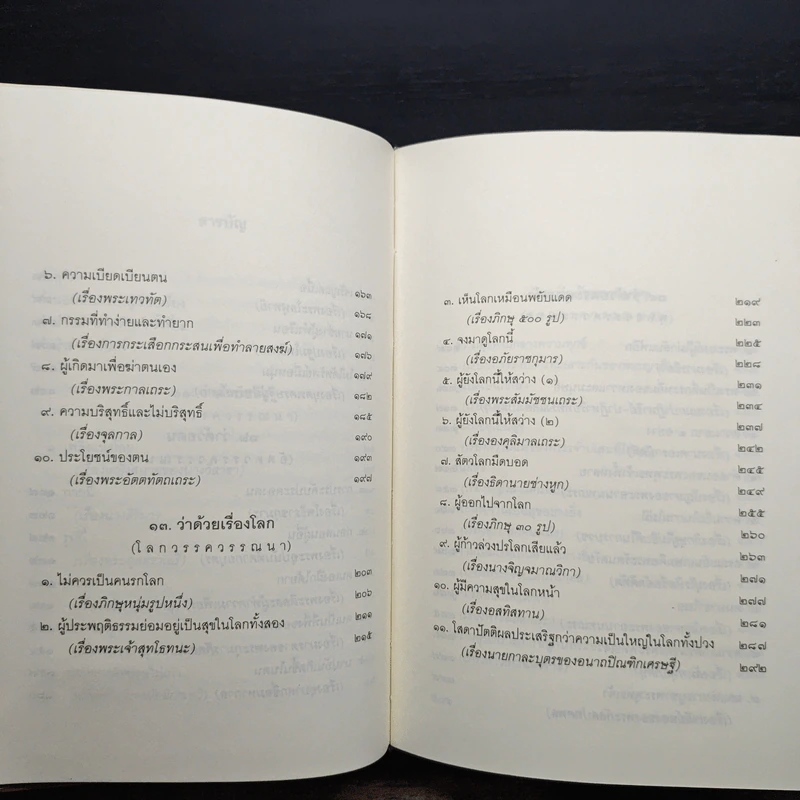 ๖. ความเบียดเบียนตน ๑๖๓
(เรื่องพระเทวทัต) ๑๖๘
๗. กรรมที่ทำง่ายและทำยาก ๑๗๑
(เรื่องการกระเสือกกระสนเพื่อทำลายสงฆ์) ๑๗๖
๘. ผู้เกิดมาเพื่อฆ่าตนเอง ๑๗๙
(เรื่องพระกาลเถระ) ๑๘๒
๙. ความบริสุทธิ์และไม่บริสุทธิ์ ๑๘๕
(เรื่องจุลกาล) ๑๙๐
๑๐. ประโยชน์ของตน ๑๙๓
(เรื่องพระอัตตทัตถเถระ) ๑๙๗
๑๓. ว่าด้วยเรื่องโลก
(โลกวรรควรรณนา)
๑. ไม่ควรเป็นคนรกโลก ๒๐๓
(เรื่องภิกษุหนุ่มรูปหนึ่ง) ๒๐๖
๒. ผู้ประพฤติธรรมย่อมอยู่เป็นสุขในโลกทั้งสอง ๒๑๑
(เรื่องพระเจ้าสุทโธทนะ) ๒๑๕
๓. เห็นโลกเหมือนพยับแดด ๒๑๙
(เรื่องภิกษุ ๕๐๐ รูป) ๒๒๓
๔. จงมาดูโลกนี้ ๒๒๕
(เรื่องอภัยราชกุมาร) ๒๒๘
๕. ผู้ยังโลกนี้ให้สว่าง (๑) ๒๓๑
(เรื่องพระสัมมัชชนเถระ) ๒๓๔
๖. ผู้ยังโลกนี้ให้สว่าง (๒) ๒๓๗
(เรื่ององคุลิมาลเถระ) ๒๔๒
๗. สัตวโลกมืดบอด ๒๔๕
(เรื่องธิดานายช่างหูก) ๒๔๙
๘. ผู้ออกไปจากโลก ๒๕๕
(เรื่องภิกษุ ๓๐ รูป) ๒๖๐
๙. ผู้ก้าวล่วงปรโลกเสียแล้ว ๒๖๓
(เรื่องนางจิญจมาณวิกา) ๒๗๑
๑๐. ผู้มีความสุขในโลกหน้า ๒๗๗
(เรื่องอสทิสทาน) ๒๘๑
๑๑. โสดาปัตติผลประเสริฐกว่าความเป็นใหญ่ในโลกทั้งปวง ๒๘๗
(เรื่องนายกาละบุตรของอนาถปิณฑิกเศรษฐี) ๒๙๒